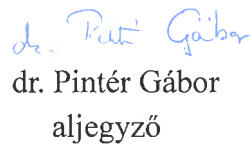 dr. Pintér Gábor
dr. Pintér Gábor
aljegyző